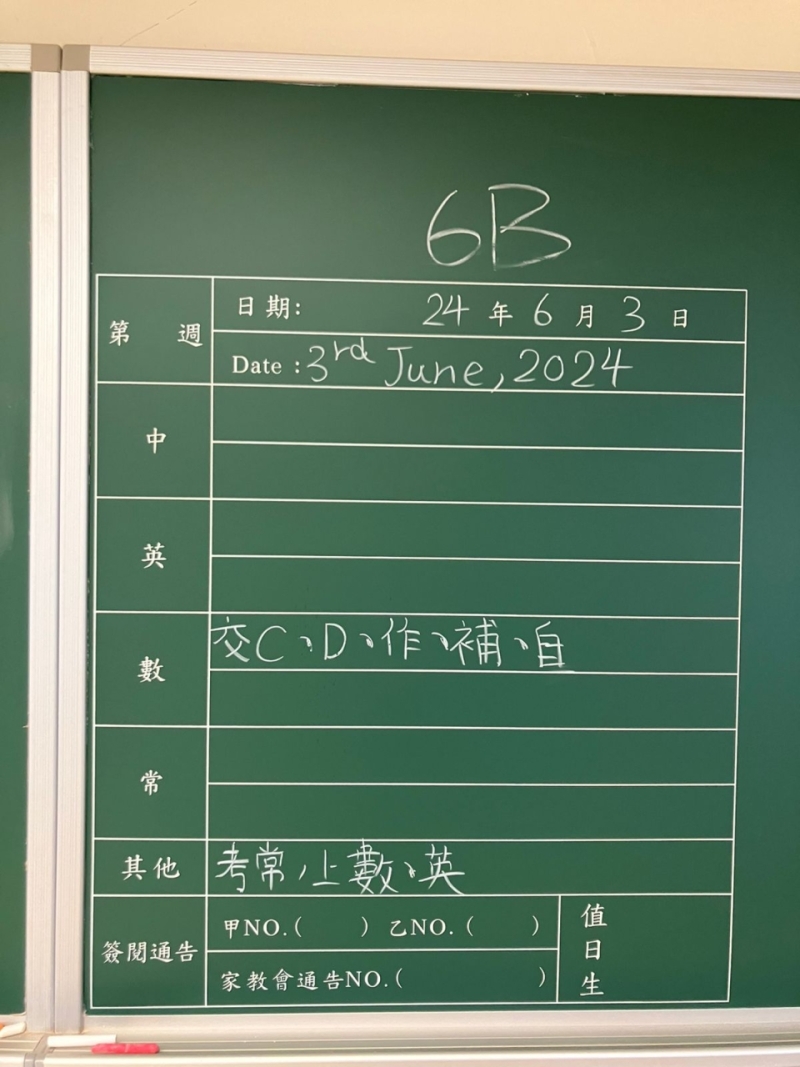 6B
第 週
日期: 24 年 6 月 3 日
Date : 3rd June, 2024
中
英
數
交C、D、作、補、自
常
其他
考常,上數、英
簽閱通告
甲NO.( ) 乙NO.( )
家教會通告NO.( )
值日生